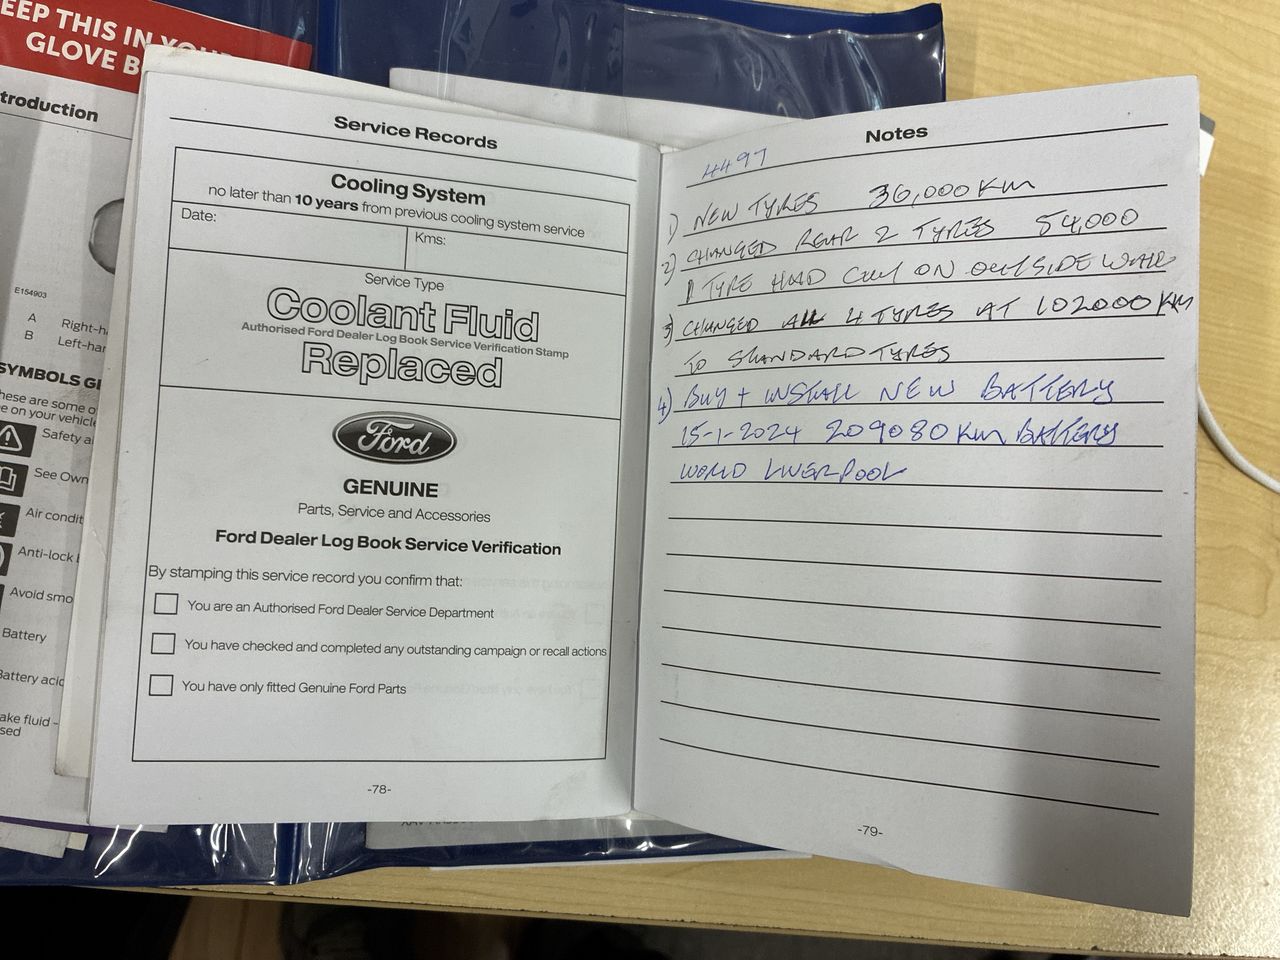 EEP THIS IN YOUR
GLOVE B
troduction
E154903
A Right-h
B Left-har
SYMBOLS GL
hese are some o
e on your vehicle
Safety al
See Own
Air condit
Anti-lock b
Avoid smo
Battery
Battery acid
ake fluid -
sed
Service Records
Cooling System
no later than 10 years from previous cooling system service
Date:
Kms:
Service Type
Coolant Fluid
Authorised Ford Dealer Log Book Service Verification Stamp
Replaced
Ford
GENUINE
Parts, Service and Accessories
Ford Dealer Log Book Service Verification
By stamping this service record you confirm that:
You are an Authorised Ford Dealer Service Department
You have checked and completed any outstanding campaign or recall actions
You have only fitted Genuine Ford Parts
-78-
Notes
4497
1) NEW TYRES 36,000 Km
2) CHANGED REAR 2 TYRES 54,000
1 TYRE HAD CUT ON OUTSIDE WALL
3) CHANGED ALL 4 TYRES AT 102000 KM
TO STANDARD TYRES
4) BUY + INSTALL NEW BATTERY
15-1-2024 209080 Km BATTERY
WORLD LIVERPOOL
-79-